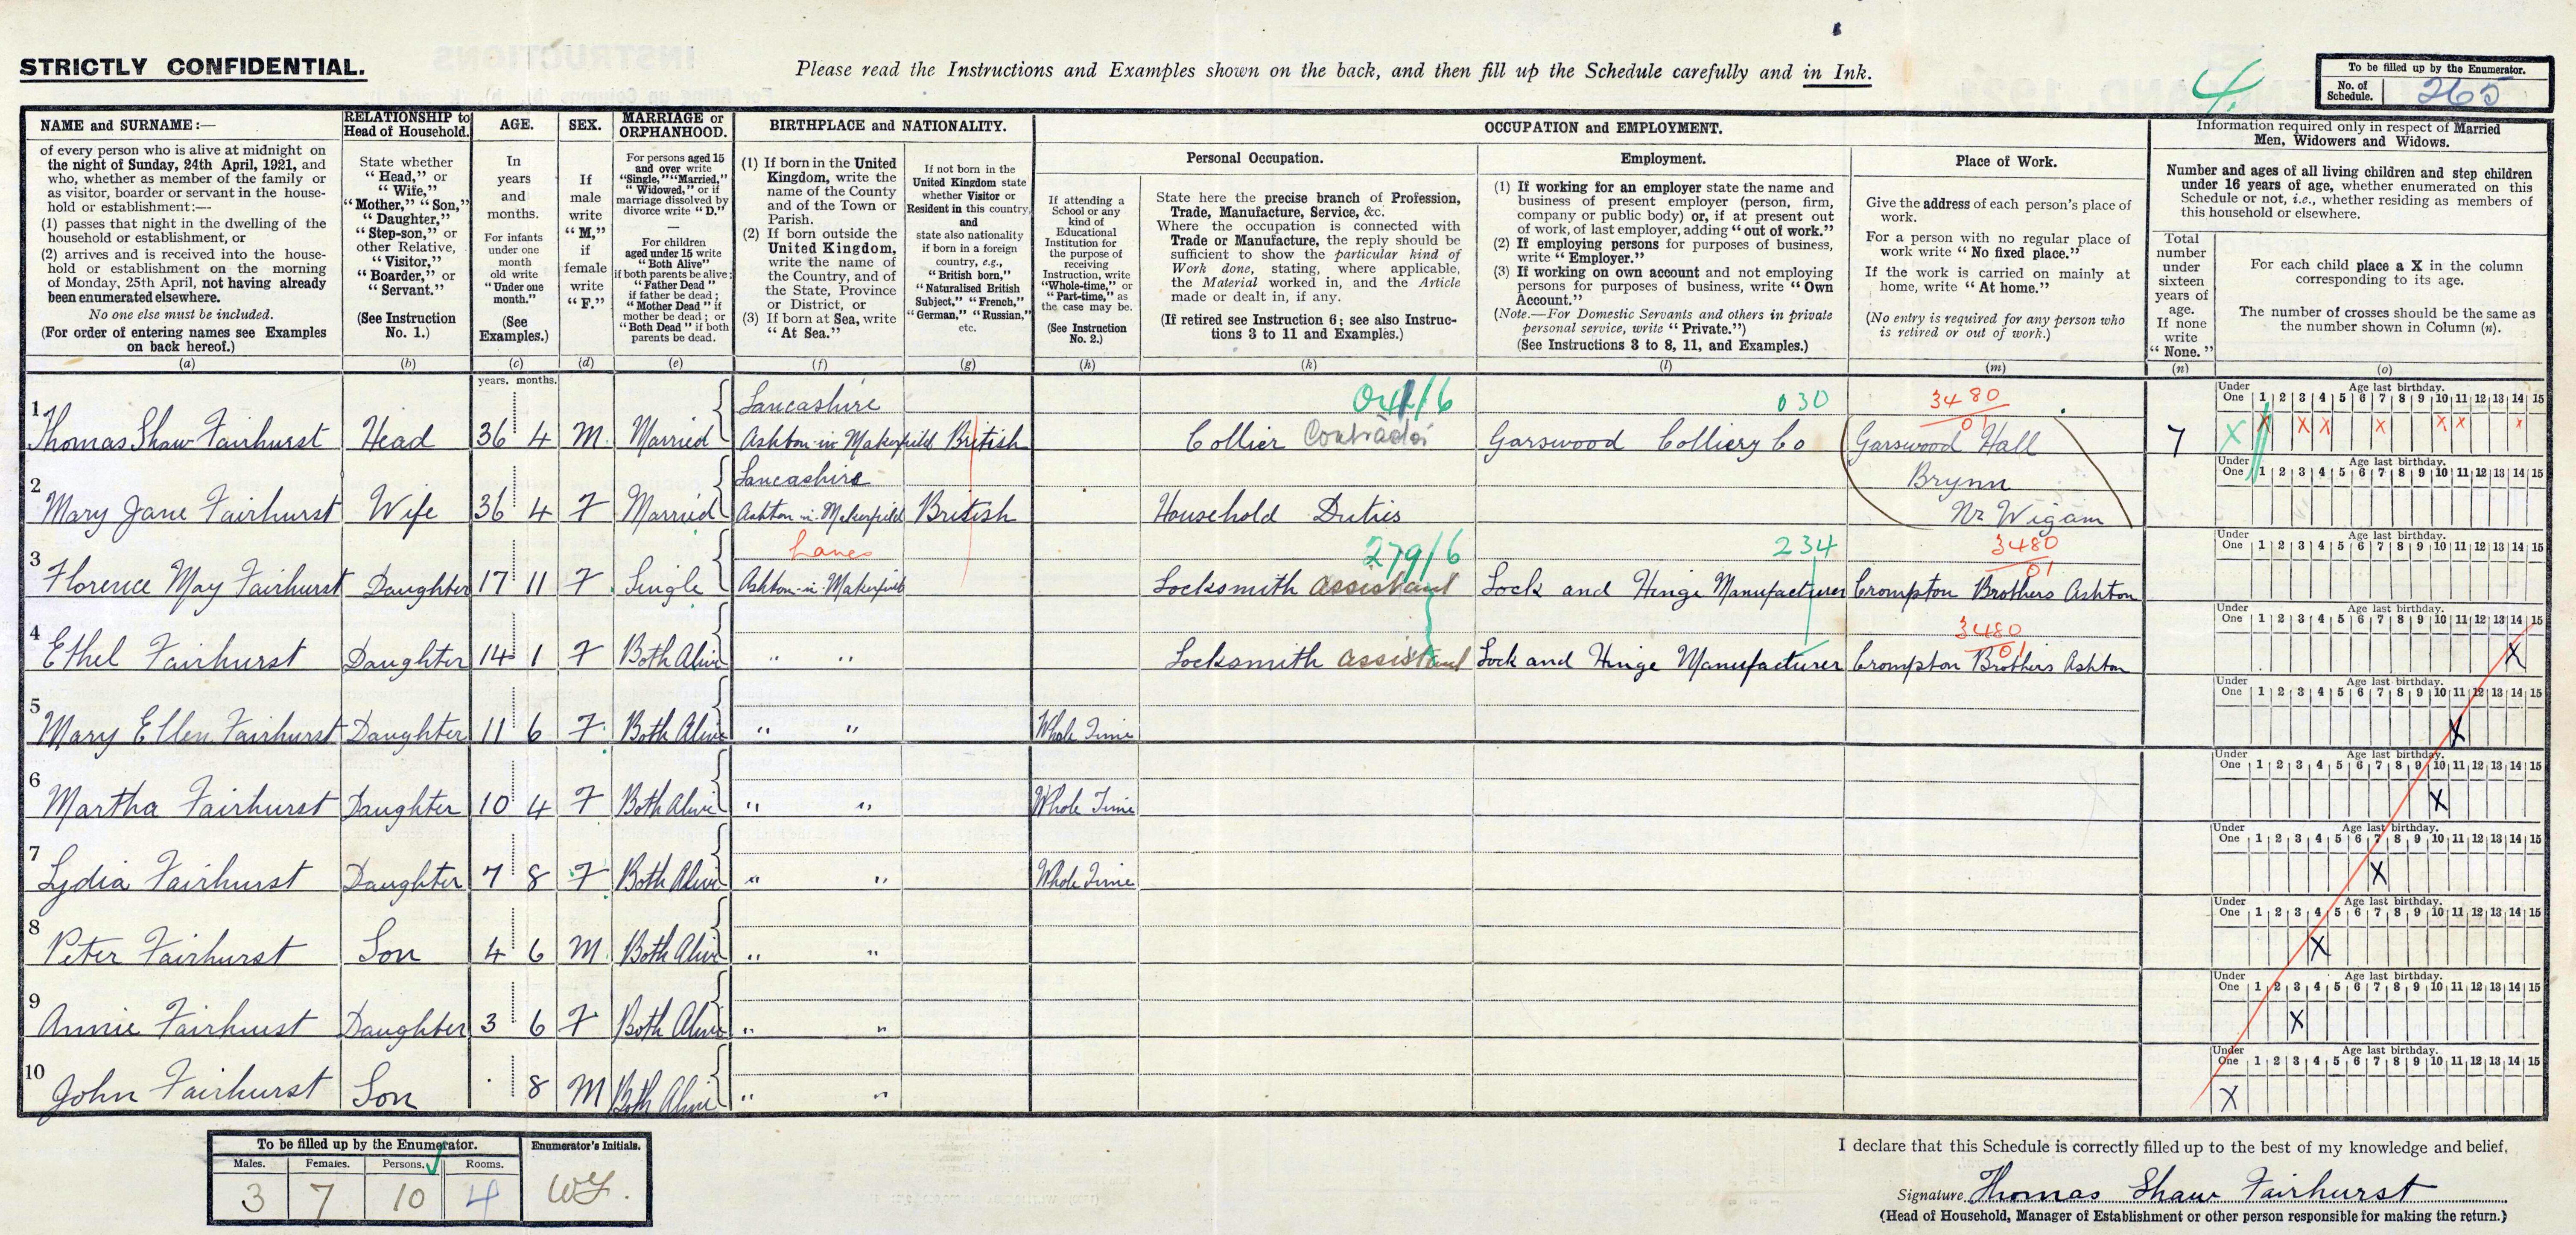 STRICTLY CONFIDENTIAL.
Please read the Instructions and Examples shown on the back, and then fill up the Schedule carefully and in Ink.
4.
To be filled up by the Enumerator.
No. of Schedule. 265
NAME and SURNAME:—
of every person who is alive at midnight on
the night of Sunday, 24th April, 1921, and
who, whether as member of the family or
as visitor, boarder or servant in the house-
hold or establishment:—
(1) passes that night in the dwelling of the
household or establishment, or
(2) arrives and is received into the house-
hold or establishment on the morning
of Monday, 25th April, not having already
been enumerated elsewhere.
No one else must be included.
(For order of entering names see Examples
on back hereof.)
(a)
RELATIONSHIP to
Head of Household.
State whether
"Head," or
"Wife,"
"Mother," "Son,"
"Daughter,"
"Step-son," or
other Relative,
"Visitor,"
"Boarder," or
"Servant."
(See Instruction
No. 1.)
(b)
AGE.
In
years
and
months.
For infants
under one
month
old write
"Under one
month."
(See
Examples.)
(c)
SEX.
If
male
write
"M,"
if
female
write
"F."
(d)
MARRIAGE or
ORPHANHOOD.
For persons aged 15
and over write
"Single," "Married,"
"Widowed," or if
marriage dissolved by
divorce write "D."
For children
aged under 15 write
"Both Alive"
if both parents be alive;
"Father Dead"
if father be dead;
"Mother Dead" if
mother be dead; or
"Both Dead" if both
parents be dead.
(e)
BIRTHPLACE and NATIONALITY.
(1) If born in the United
Kingdom, write the
name of the County
and of the Town or
Parish.
(2) If born outside the
United Kingdom,
write the name of
the Country, and of
the State, Province
or District, or
(3) If born at Sea, write
"At Sea."
(f)
If not born in the
United Kingdom state
whether Visitor or
Resident in this country,
and
state also nationality
if born in a foreign
country, e.g.,
"British born,"
"Naturalised British
Subject," "French,"
"German," "Russian,"
etc.
(g)
OCCUPATION and EMPLOYMENT.
If attending a
School or any
kind of
Educational
Institution for
the purpose of
receiving
Instruction, write
"Whole-time," or
"Part-time," as
the case may be.
(See Instruction
No. 2.)
(h)
Personal Occupation.
State here the precise branch of Profession,
Trade, Manufacture, Service, &c.
Where the occupation is connected with
Trade or Manufacture, the reply should be
sufficient to show the particular kind of
Work done, stating, where applicable,
the Material worked in, and the Article
made or dealt in, if any.
(If retired see Instruction 6; see also Instruc-
tions 3 to 11 and Examples.)
(k)
Employment.
(1) If working for an employer state the name and
business of present employer (person, firm,
company or public body) or, if at present out
of work, of last employer, adding "out of work."
(2) If employing persons for purposes of business,
write "Employer."
(3) If working on own account and not employing
persons for purposes of business, write "Own
Account."
(Note.—For Domestic Servants and others in private
personal service, write "Private.")
(See Instructions 3 to 8, 11, and Examples.)
(l)
Place of Work.
Give the address of each person's place of
work.
For a person with no regular place of
work write "No fixed place."
If the work is carried on mainly at
home, write "At home."
(No entry is required for any person who
is retired or out of work.)
(m)
Information required only in respect of Married
Men, Widowers and Widows.
Number and ages of all living children and step children
under 16 years of age, whether enumerated on this
Schedule or not, i.e., whether residing as members of
this household or elsewhere.
Total
number
under
sixteen
years of
age.
If none
write
"None."
(n)
For each child place a X in the column
corresponding to its age.
The number of crosses should be the same as
the number shown in Column (n).
(o)
years. months.
Under One Age last birthday. 1 2 3 4 5 6 7 8 9 10 11 12 13 14 15
Lancashire 030 3480/01
1 Thomas Shaw Fairhurst Head 36 4 M Married Ashton-in-Makerfield British Collier Contractor Garswood Colliery Co Garswood Hall 7 X X X X X X X X
Under One Age last birthday. 1 2 3 4 5 6 7 8 9 10 11 12 13 14 15
Lancashire Brynn
2 Mary Jane Fairhurst Wife 36 4 F Married Ashton-in-Makerfield British Household Duties Nr Wigan
Under One Age last birthday. 1 2 3 4 5 6 7 8 9 10 11 12 13 14 15
Lancs 279/6 234 3480/01
3 Florence May Fairhurst Daughter 17 11 F Single Ashton-in-Makerfield Locksmith assistant Lock and Hinge Manufacturer Crompton Brothers Ashton
Under One Age last birthday. 1 2 3 4 5 6 7 8 9 10 11 12 13 14 15
3480/01
4 Ethel Fairhurst Daughter 14 1 F Both Alive " " Locksmith assistant Lock and Hinge Manufacturer Crompton Brothers Ashton X
Under One Age last birthday. 1 2 3 4 5 6 7 8 9 10 11 12 13 14 15
5 Mary Ellen Fairhurst Daughter 11 6 F Both Alive " " Whole Time X
Under One Age last birthday. 1 2 3 4 5 6 7 8 9 10 11 12 13 14 15
6 Martha Fairhurst Daughter 10 4 F Both Alive " " Whole Time X
Under One Age last birthday. 1 2 3 4 5 6 7 8 9 10 11 12 13 14 15
7 Lydia Fairhurst Daughter 7 8 F Both Alive " " Whole Time X
Under One Age last birthday. 1 2 3 4 5 6 7 8 9 10 11 12 13 14 15
8 Peter Fairhurst Son 4 6 M Both Alive " " X
Under One Age last birthday. 1 2 3 4 5 6 7 8 9 10 11 12 13 14 15
9 Annie Fairhurst Daughter 3 6 F Both Alive " " X
Under One Age last birthday. 1 2 3 4 5 6 7 8 9 10 11 12 13 14 15
10 John Fairhurst Son 8 M Both Alive " " X
To be filled up by the Enumerator.
Males. Females. Persons. Rooms.
3 7 10 4
Enumerator's Initials.
I declare that this Schedule is correctly filled up to the best of my knowledge and belief,
Signature Thomas Shaw Fairhurst
(Head of Household, Manager of Establishment or other person responsible for making the return.)